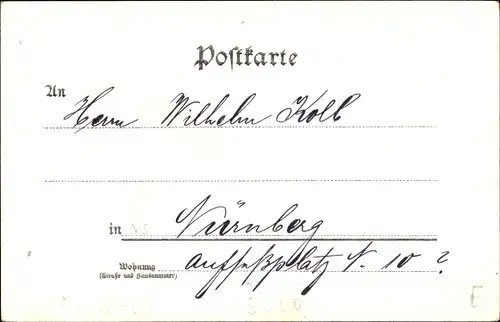 Postkarte
An
Herrn Wilhelm Kolb
in Nürnberg
Wohnung Aufseßplatz N. 10
(Straße und Hausnummer)